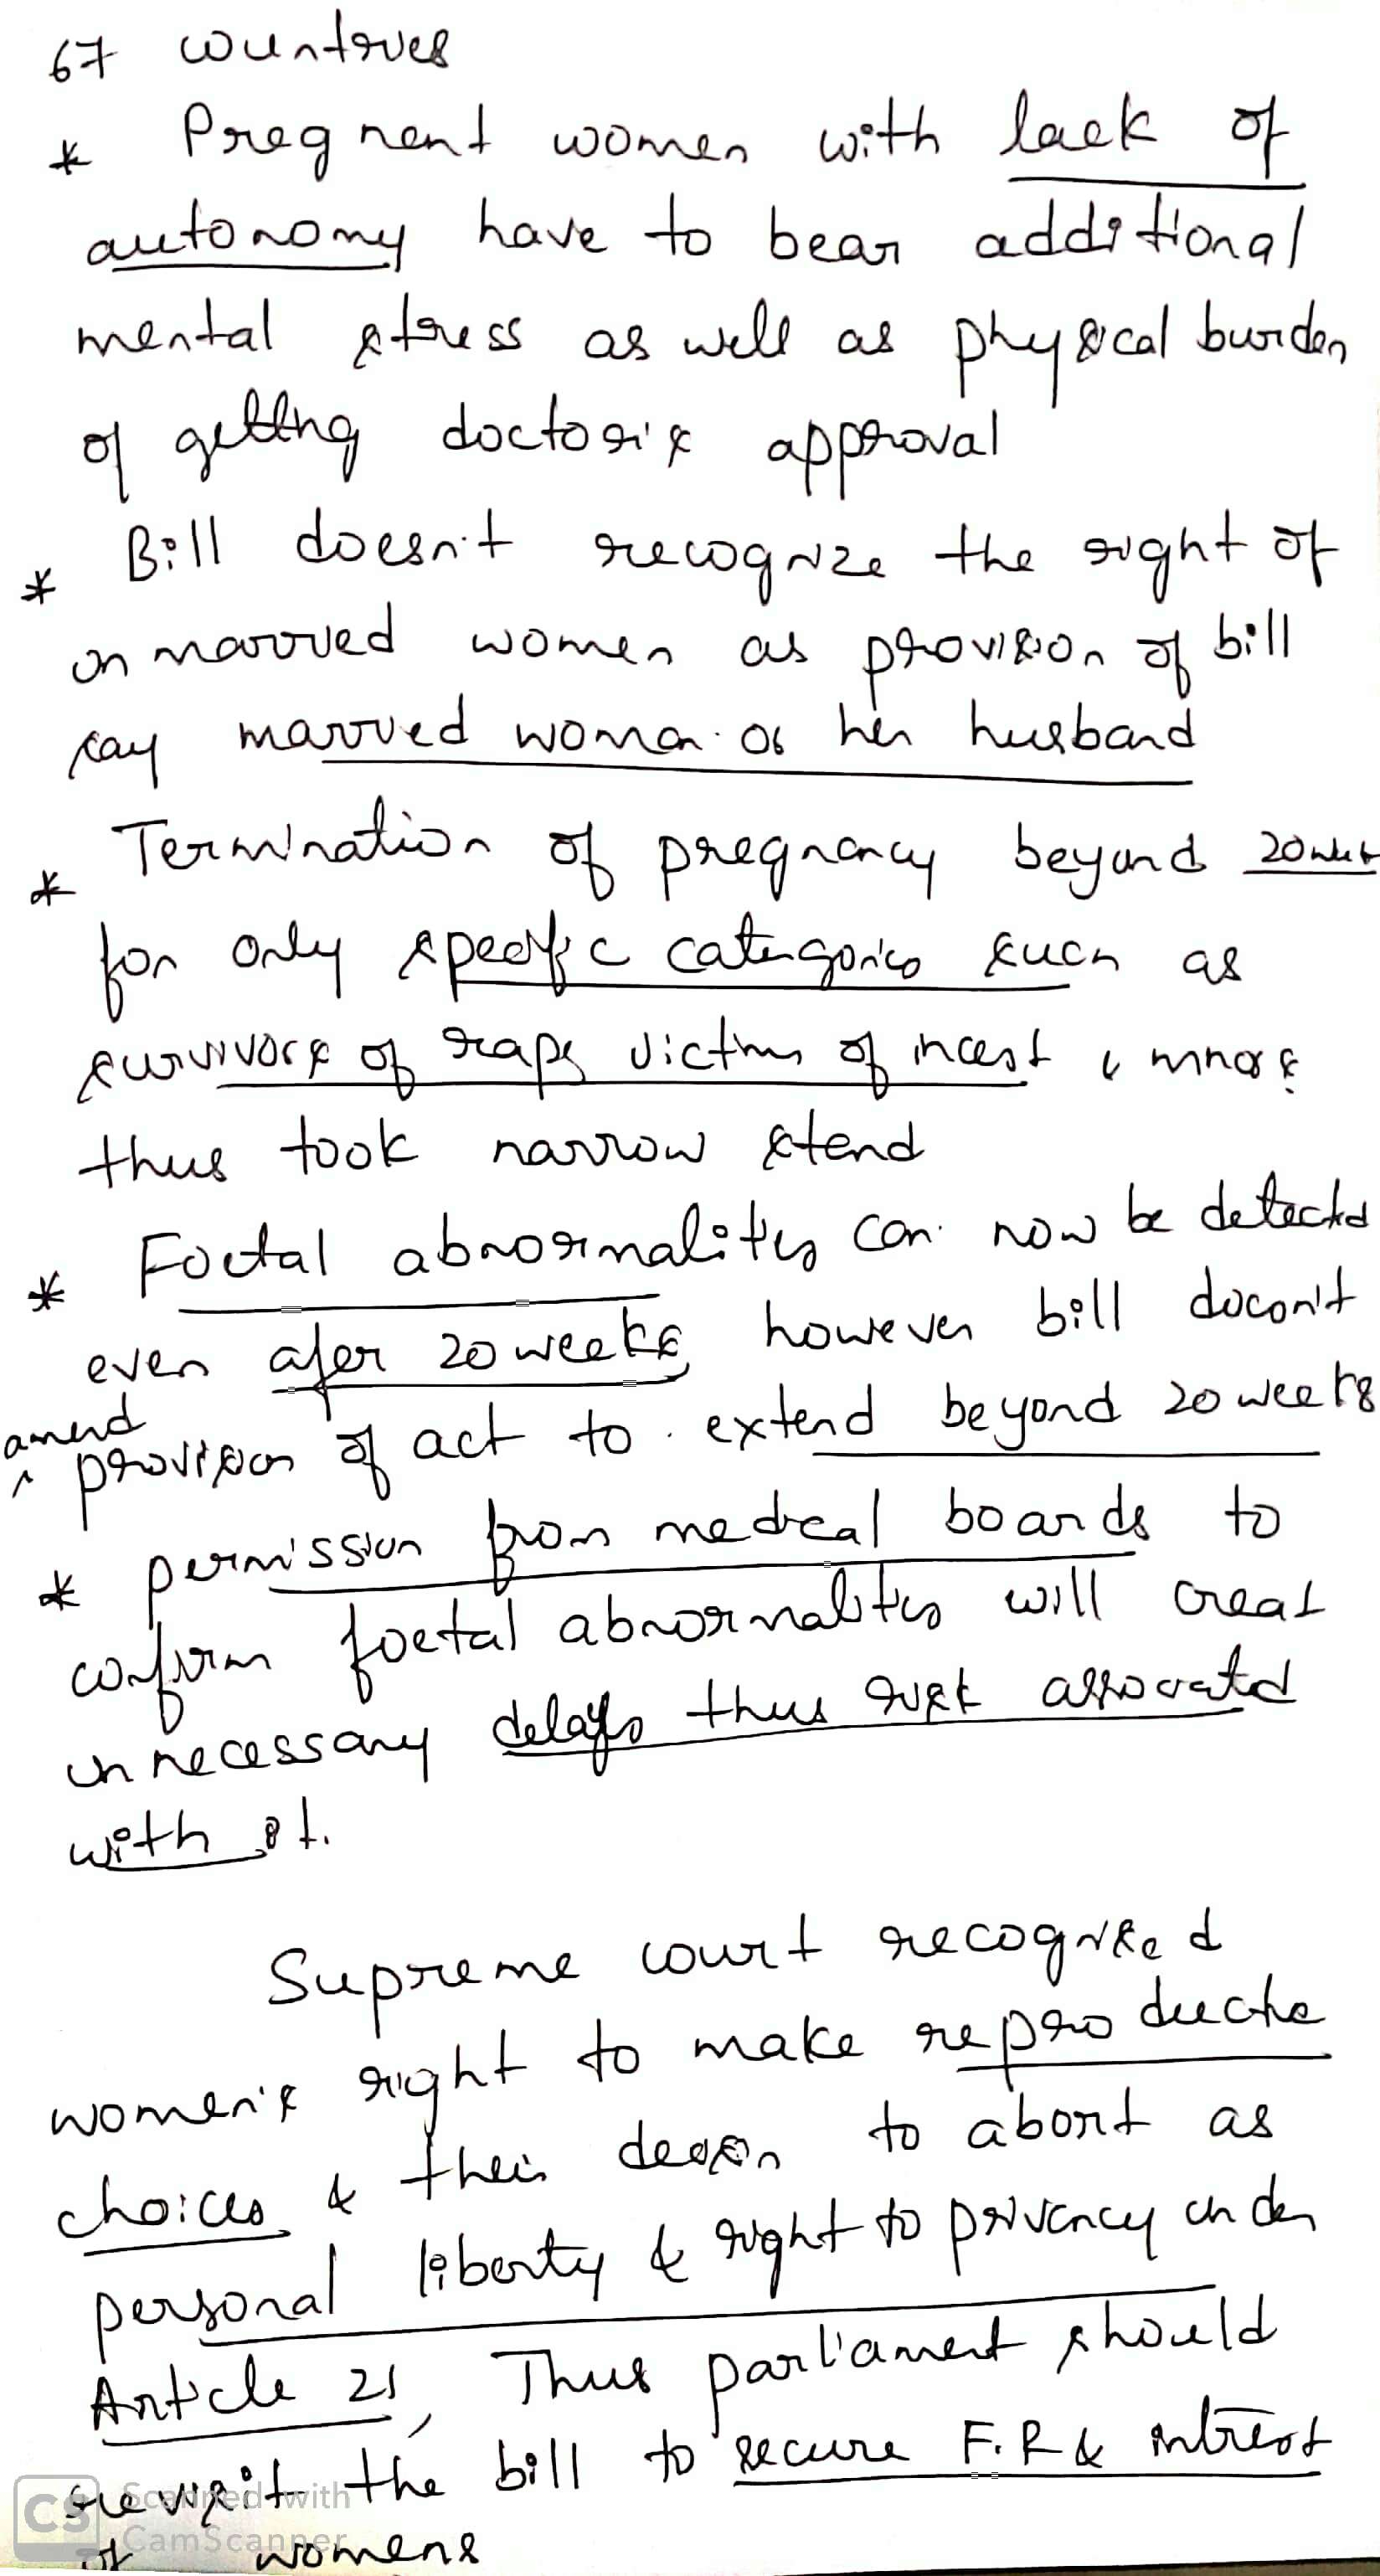 67 countries
* Pregnent women with lack of
autonomy have to bear additional
mental stress as well as physical burden
of getting doctor's approval
* Bill doesn't recognize the right of
unmarried women as provision of bill
say married woman or her husband
* Termination of pregnancy beyond 20 weeks
for only specific categories such as
survivors of rape victims of incest & minors
thus took narrow stend
* Foetal abnormalities can now be detected
even after 20 weeks however bill doesn't
amend
provision of act to extend beyond 20 weeks
* permission from medical boards to
confirm foetal abnormalities will creat
unnecessary delays thus risk associated
with it.
Supreme court recognised
women's right to make reproductive
choices & their decision to abort as
personal liberty & right to privency under
Article 21, Thus parliament should
revisit the bill to secure F.R & intrest
of womens
CS Scanned with
CamScanner